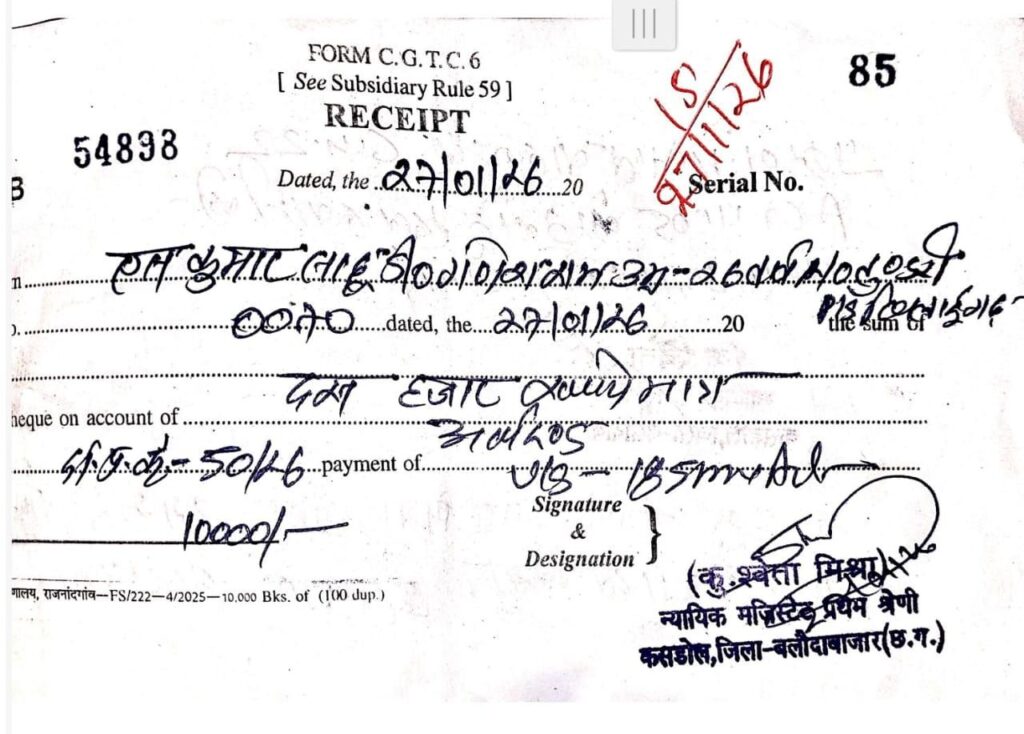 FORM C.G.T.C. 6
[ See Subsidiary Rule 59 ]
RECEIPT
85
54893
15
27/1/26
B
Dated, the 27/01/26 20
Serial No.
कुमार साहू
m
0070 dated, the 27/01/26 20 the sum of
दस हजार रूपये मात्र
heque on account of
अर्थदण्ड
50/26 payment of
10000/-
Signature
&
Designation
(कु.श्वेता मिश्रा)
न्यायिक मजिस्ट्रेट प्रथम श्रेणी
कसडोल,जिला-बलौदाबाजार(छ.ग.)
णालय, राजनांदगांव—FS/222—4/2025—10,000 Bks. of (100 dup.)